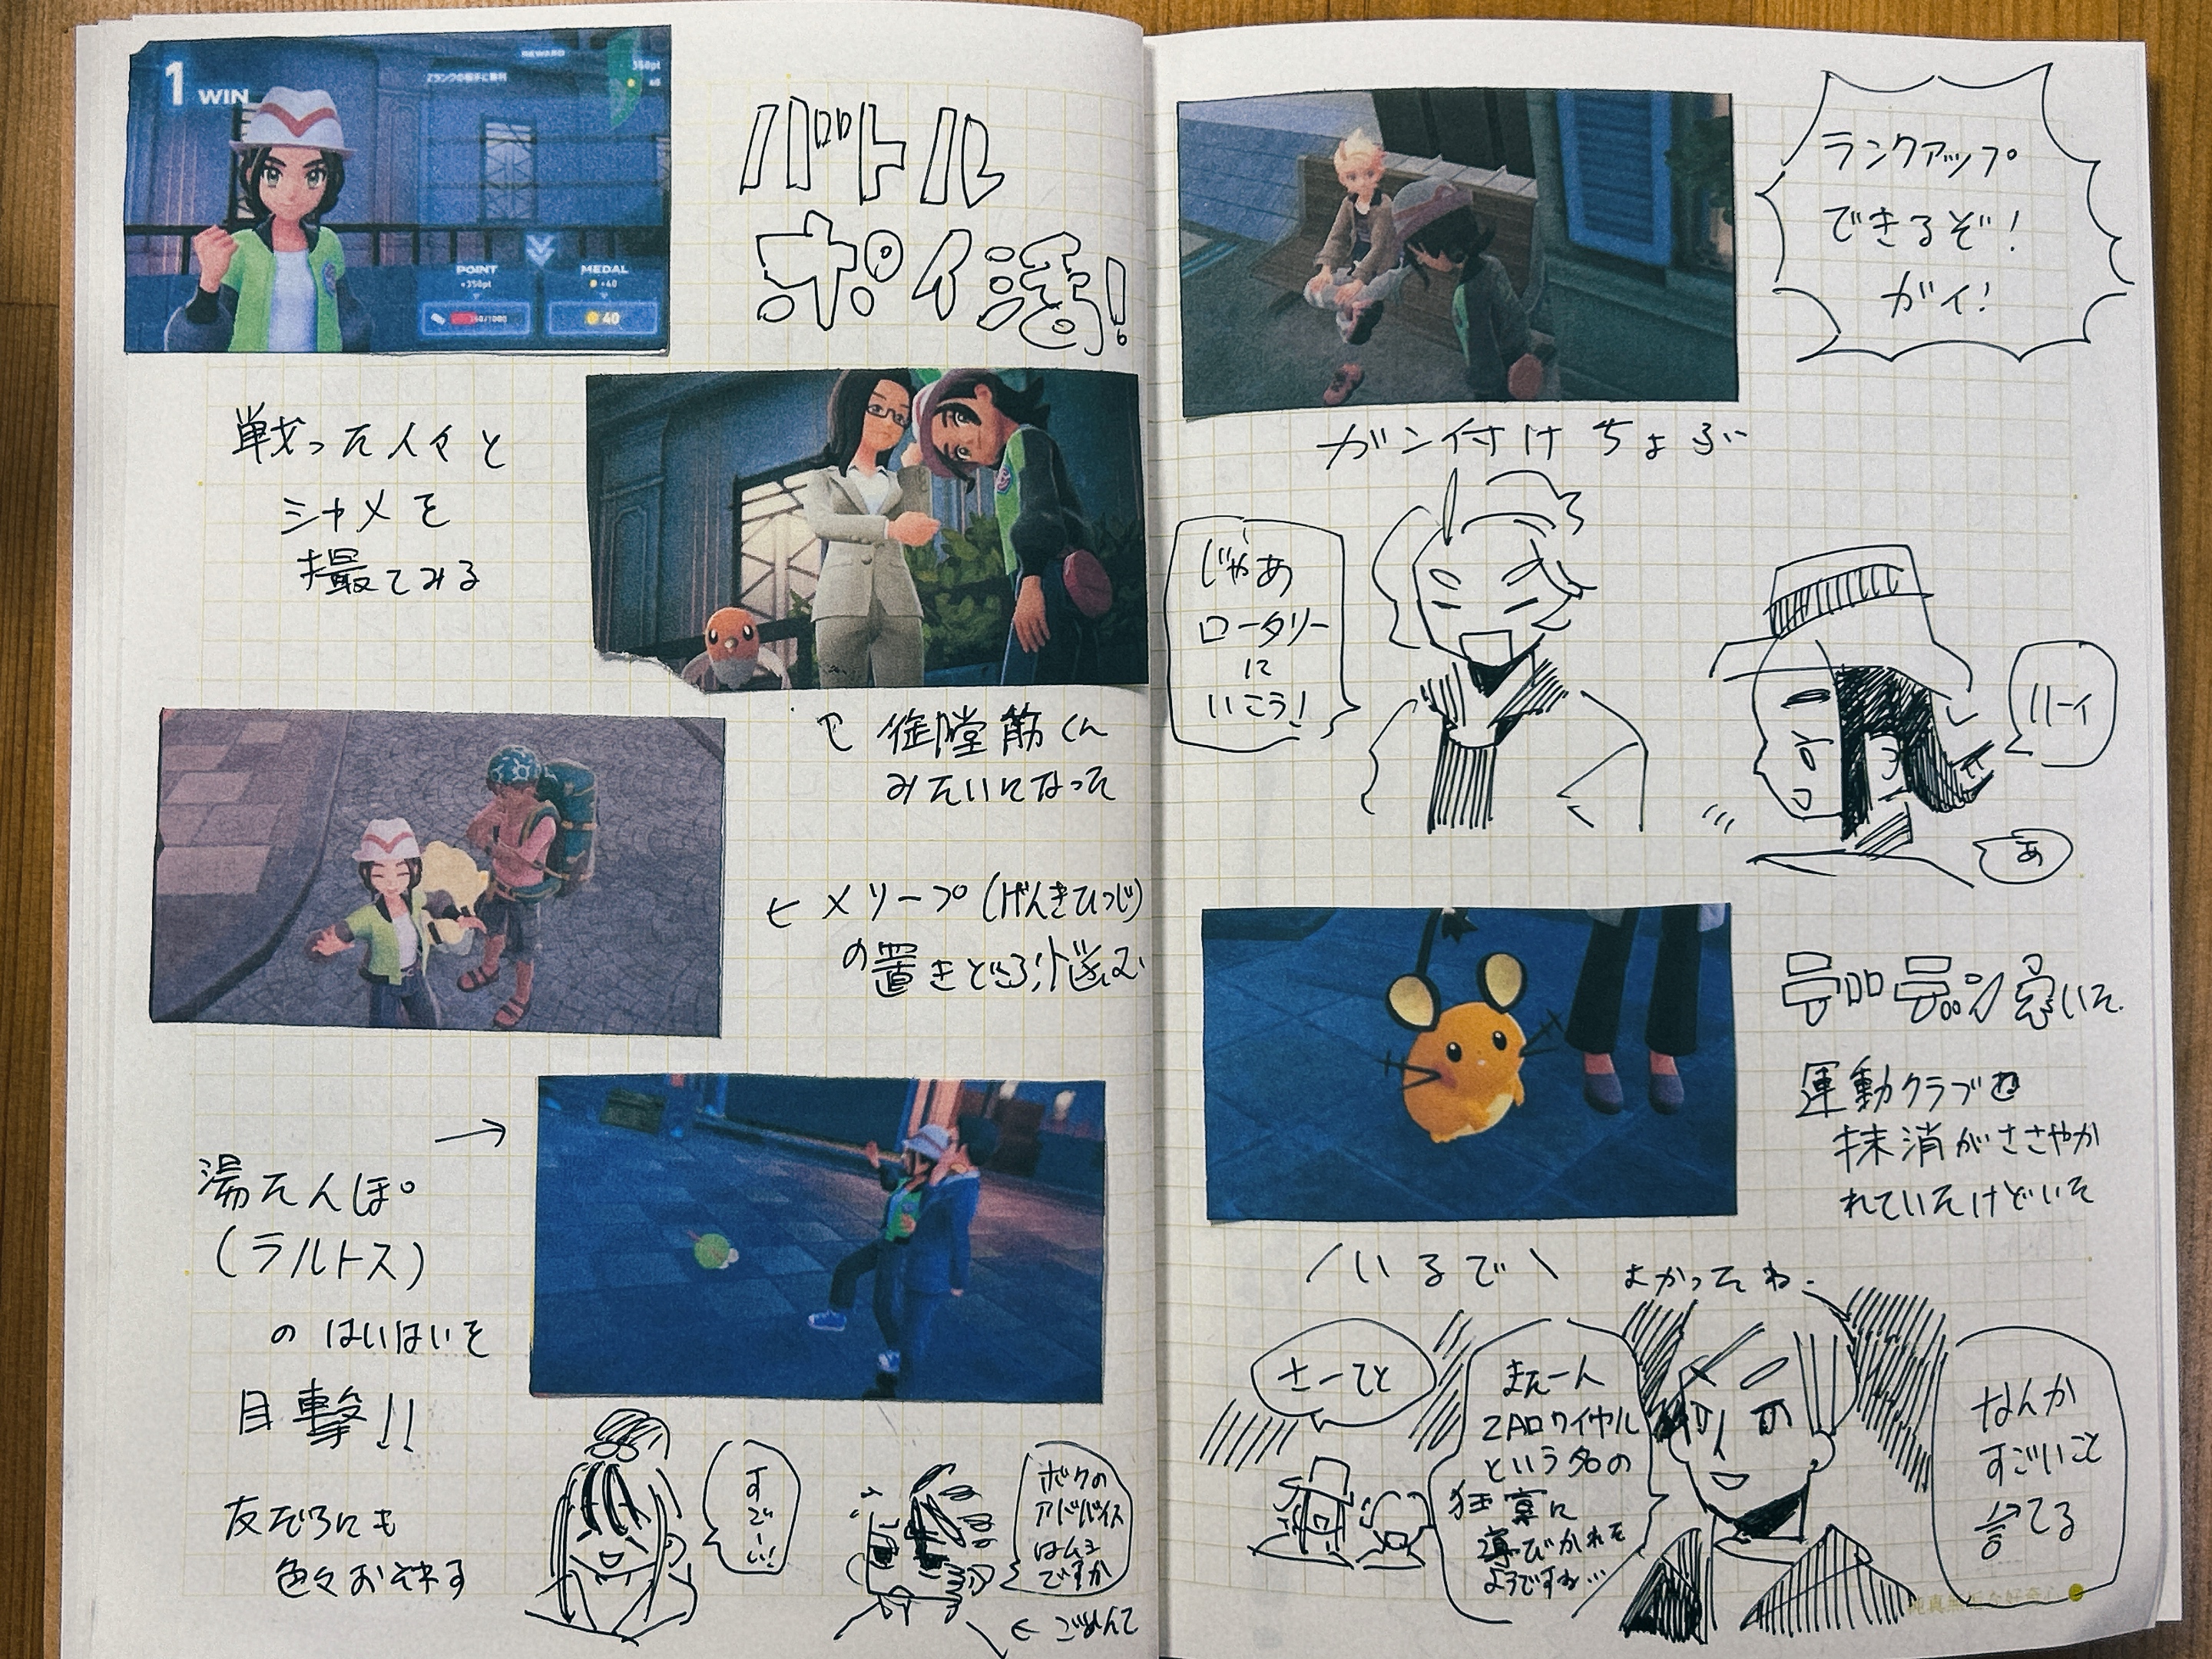 1 WIN
REWARD
Zランクの相手に勝利
350pt
60
POINT
+350pt
MEDAL
+40
40
バトル
ポイ活!
戦った人々と
シャメを
撮てみる
御堂筋くん
みたいになった
← メリープ(げんきひつじ)
の置きどころに悩む
→
湯たんぽ
(ラルトス)
のはいはいを
目撃!!
友だちにも
色々お裾す
すごーい!
ボクの
アドバイス
はムシ
ですか
← ごめんて
ランクアップ
できるぞ!
ガイ!
ガン付けちょる
じゃあ
ロータリー
に
いこう!
ハーイ
あ
デデンネいた
運動クラブ
抹消がささやか
れていたけどいた
/いるで\
よかったね
さーてと
また一人
ZAロワイヤル
という名の
狂宴に
導びかれた
ようですね…
なんか
すごいこと
言てる